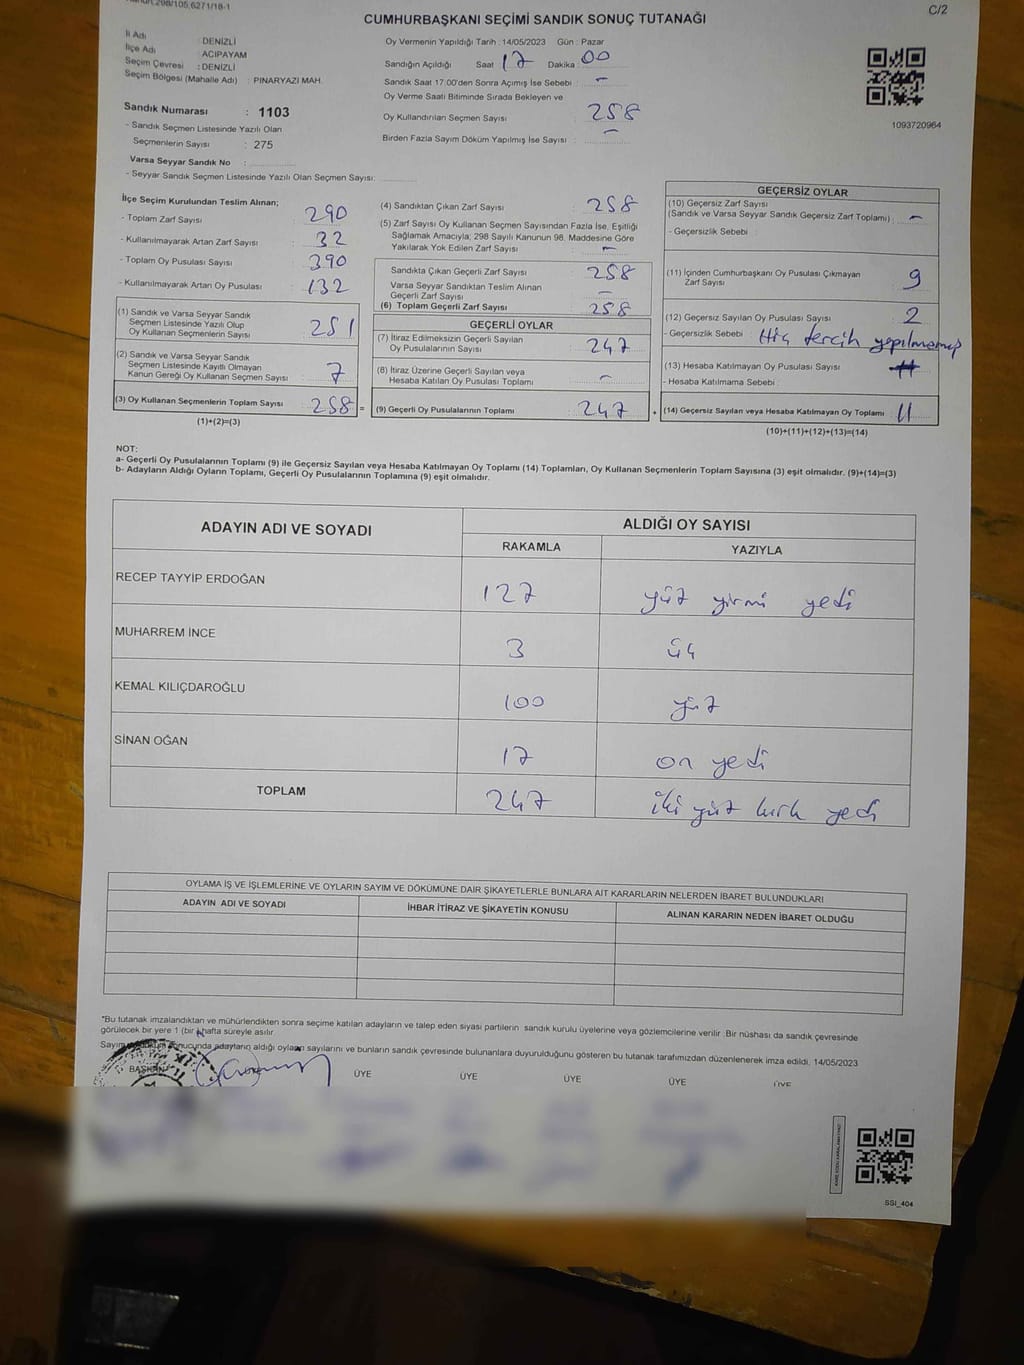 C/2
CUMHURBAŞKANI SEÇİMİ SANDIK SONUÇ TUTANAĞI
İl Adı : DENİZLİ
İlçe Adı : ACIPAYAM
Seçim Çevresi : DENİZLİ
Seçim Bölgesi (Mahalle Adı) : PINARYAZI MAH.
Sandık Numarası : 1103
- Sandık Seçmen Listesinde Yazılı Olan
Seçmenlerin Sayısı : 275
Varsa Seyyar Sandık No :
- Seyyar Sandık Seçmen Listesinde Yazılı Olan Seçmen Sayısı:
Oy Vermenin Yapıldığı Tarih : 14/05/2023 Gün : Pazar
Sandığın Açıldığı Saat 17 Dakika : 00
Sandık Saat 17:00'den Sonra Açımış İse Sebebi : -
Oy Verme Saati Bitiminde Sırada Bekleyen ve
Oy Kullandırılan Seçmen Sayısı : 258
Birden Fazla Sayım Döküm Yapılmış İse Sayısı : -
1093720964
İlçe Seçim Kurulundan Teslim Alınan;
- Toplam Zarf Sayısı : 290
- Kullanılmayarak Artan Zarf Sayısı : 32
- Toplam Oy Pusulası Sayısı : 390
- Kullanılmayarak Artan Oy Pusulası : 132
(1) Sandık ve Varsa Seyyar Sandık
Seçmen Listesinde Yazılı Olup
Oy Kullanan Seçmenlerin Sayısı : 251
(2) Sandık ve Varsa Seyyar Sandık
Seçmen Listesinde Kayıtlı Olmayan
Kanun Gereği Oy Kullanan Seçmen Sayısı : 7
(3) Oy Kullanan Seçmenlerin Toplam Sayısı : 258 =
(1)+(2)=(3)
(4) Sandıktan Çıkan Zarf Sayısı : 258
(5) Zarf Sayısı Oy Kullanan Seçmen Sayısından Fazla İse, Eşitliği
Sağlamak Amacıyla; 298 Sayılı Kanunun 98. Maddesine Göre
Yakılarak Yok Edilen Zarf Sayısı : -
Sandıkta Çıkan Geçerli Zarf Sayısı : 258
Varsa Seyyar Sandıktan Teslim Alınan
Geçerli Zarf Sayısı : -
(6) Toplam Geçerli Zarf Sayısı : 258
GEÇERLİ OYLAR
(7) İtiraz Edilmeksizin Geçerli Sayılan
Oy Pusulalarının Sayısı : 247
(8) İtiraz Üzerine Geçerli Sayılan veya
Hesaba Katılan Oy Pusulası Toplamı : -
(9) Geçerli Oy Pusulalarının Toplamı : 247 +
GEÇERSİZ OYLAR
(10) Geçersiz Zarf Sayısı
(Sandık ve Varsa Seyyar Sandık Geçersiz Zarf Toplamı) : -
- Geçersizlik Sebebi :
(11) İçinden Cumhurbaşkanı Oy Pusulası Çıkmayan
Zarf Sayısı : 9
(12) Geçersiz Sayılan Oy Pusulası Sayısı : 2
- Geçersizlik Sebebi : Hiç tercih yapılmamış
(13) Hesaba Katılmayan Oy Pusulası Sayısı :
- Hesaba Katılmama Sebebi :
(14) Geçersiz Sayılan veya Hesaba Katılmayan Oy Toplamı : 11
(10)+(11)+(12)+(13)=(14)
NOT:
a- Geçerli Oy Pusulalarının Toplamı (9) ile Geçersiz Sayılan veya Hesaba Katılmayan Oy Toplamı (14) Toplamları, Oy Kullanan Seçmenlerin Toplam Sayısına (3) eşit olmalıdır. (9)+(14)=(3)
b- Adayların Aldığı Oyların Toplamı, Geçerli Oy Pusulalarının Toplamına (9) eşit olmalıdır.
ADAYIN ADI VE SOYADI ALDIĞI OY SAYISI
RAKAMLA YAZIYLA
RECEP TAYYİP ERDOĞAN 127 yüz yirmi yedi
MUHARREM İNCE 3 üç
KEMAL KILIÇDAROĞLU 100 yüz
SİNAN OĞAN 17 on yedi
TOPLAM 247 iki yüz kırk yedi
OYLAMA İŞ VE İŞLEMLERİNE VE OYLARIN SAYIM VE DÖKÜMÜNE DAİR ŞİKAYETLERLE BUNLARA AİT KARARLARIN NELERDEN İBARET BULUNDUKLARI
ADAYIN ADI VE SOYADI İHBAR İTİRAZ VE ŞİKAYETİN KONUSU ALINAN KARARIN NEDEN İBARET OLDUĞU
"Bu tutanak imzalandıktan ve mühürlendikten sonra seçime katılan adayların ve talep eden siyasi partilerin sandık kurulu üyelerine veya gözlemcilerine verilir .Bir nüshası da sandık çevresinde
görülecek bir yere 1 (bir) hafta süreyle asılır.
Sayım sonucunda adayların aldığı oyların sayılarını ve bunların sandık çevresinde bulunanlara duyurulduğunu gösteren bu tutanak tarafımızdan düzenlenerek imza edildi. 14/05/2023
BAŞKAN ÜYE ÜYE ÜYE ÜYE ÜYE
SSI_404